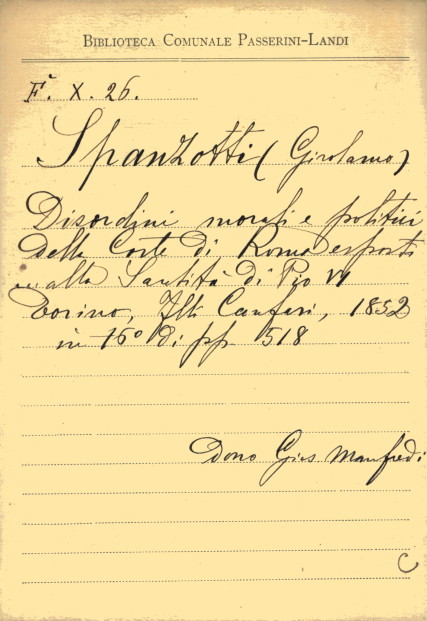 BIBLIOTECA COMUNALE PASSERINI-LANDI
Fr. X. 26.
Spanzotti (Girolamo)
Disordini morali e politici
della Corte di Roma esposti
alla Santità di Pio VI
Torino, Flli Canfari, 1852
in 16° di pp 518
Dono Gius Manfredi
C